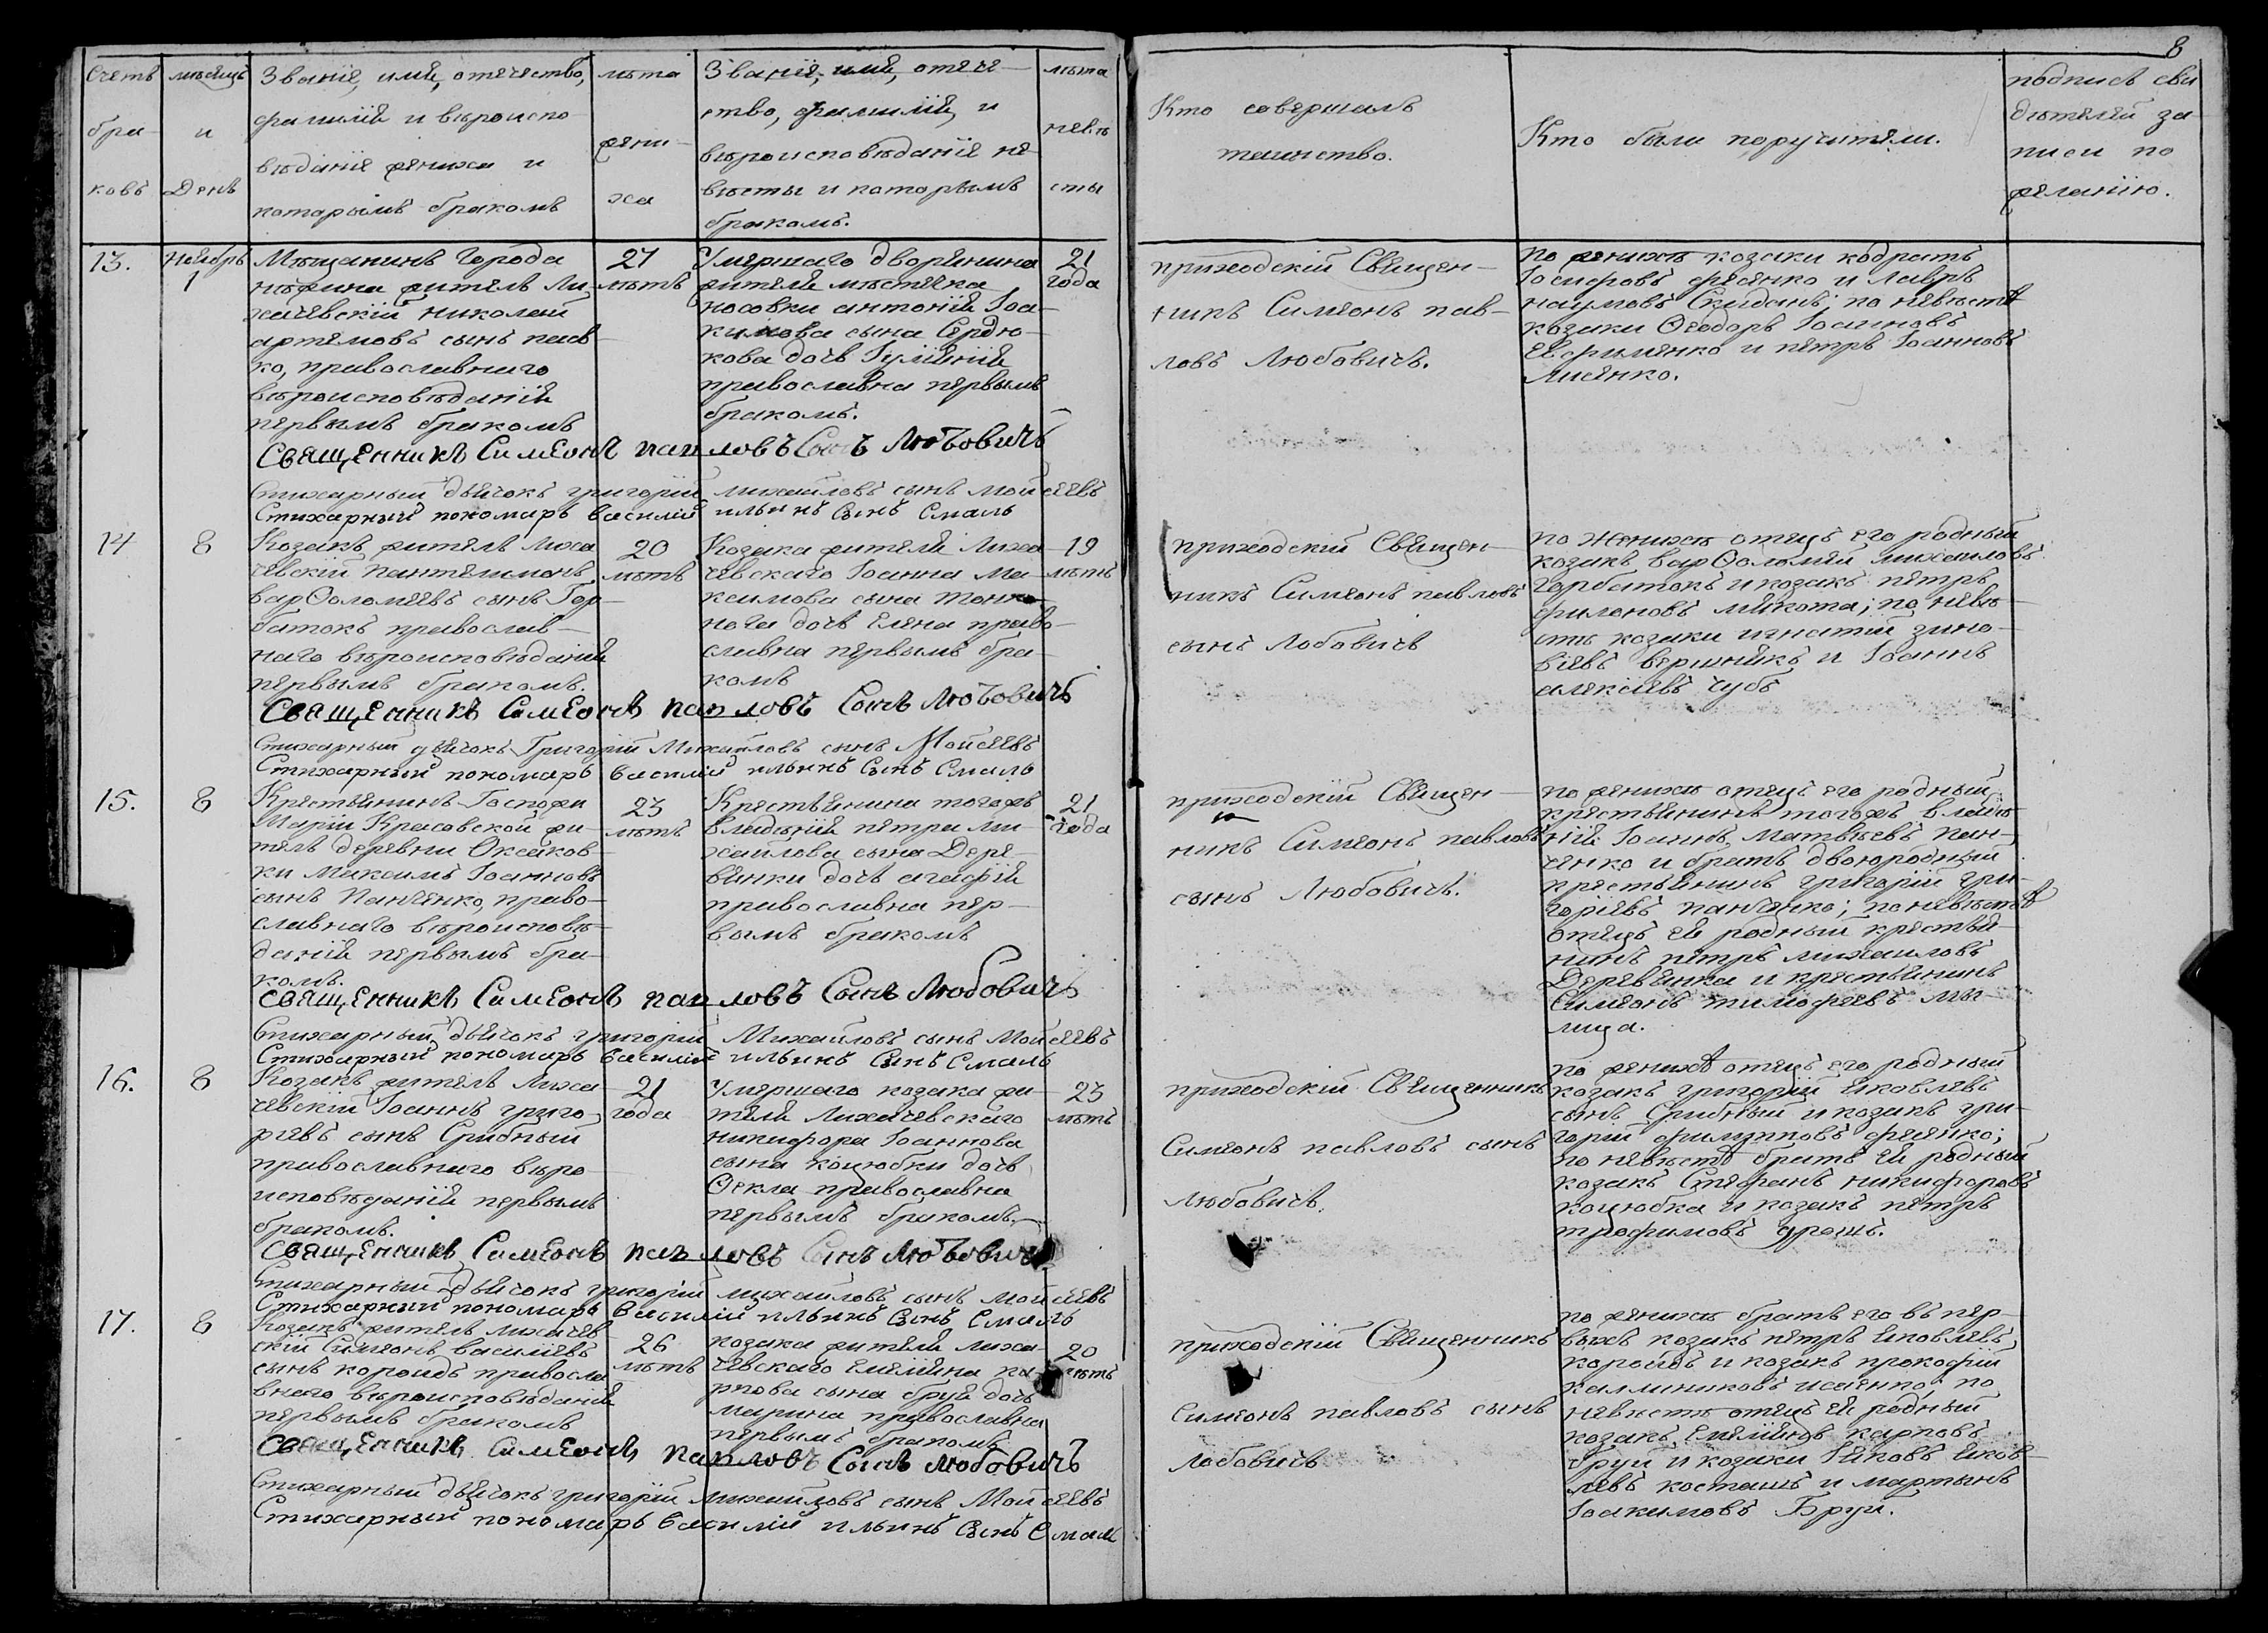 8
Счетъ бра-ковъ
мѣсяцъ и День
Званіе, имя, отечество,
фамилія и вѣроиспо-
вѣданіе жениха и
которымъ бракомъ
лѣта жени-ха
Званіе, имя, отече-
ство, фамилія, и
вѣроисповѣданіе не-
вѣсты и которымъ
бракомъ.
лѣта невѣ-сты
Кто совершалъ
таинство.
Кто были поручители.
подпись сви
дѣтелей за-
писи по
желанію.
13.
Ноябрь
1
Мѣщанинъ города
Нѣжина житель Ли-
хачевскій Николай
Артемовъ сынъ
православнаго
вѣроисповѣданія
первымъ бракомъ
27
лѣтъ
Умершаго дворянина
жителя мѣстечка
Носовки Антонія Іоа-
кимова сына Сердю-
кова дочь Іуліянія
православна первымъ
бракомъ.
21
года
приходскій Священ-
никъ Симеонъ Пав-
ловъ Любовичъ.
по женихѣ козаки Кодратъ
Іосифовъ Фесенко и Лавръ
Наумовъ Скиданъ; по невѣстѣ
козаки Ѳеодоръ Іоанновъ
Евфименко и Петръ Іоанновъ
Лисенко.
Священникъ Симеонъ Павловъ Сынъ Любовичъ
Стихарный дьячокъ Григорій Михайловъ сынъ Мойсеевъ
Стихарный пономарь Василій Ильинъ Сынъ Смаль
14
8
Козакъ житель Лиха
чевскій Пантелимонъ
Варѳоломеевъ сынъ Гор-
батокъ православ-
наго вѣроисповѣданія
первымъ бракомъ.
20
лѣтъ
Козака жителя Лиха-
чевскаго Іоанна Ма-
ксимова сына Тонко-
нога дочь Елена право-
славна первымъ бра-
комъ
19
лѣтъ
приходскій Священ-
никъ Симеонъ Павловъ
сынъ Лобовичъ
по женихѣ отецъ его родный
козакъ Варѳоломей Михайловъ
Гарбатокъ и козакъ Петръ
Филоновъ Мякота; по невѣ-
стѣ козаки Игнатій Зино-
віевъ Вершнякъ и Іоаннъ
Алексіевъ Чубъ
Священникъ Симеонъ Павловъ Сынъ Любовичъ
Стихарный дьячокъ Григорій Михайловъ сынъ Мойсеевъ
Стихарный пономарь Василій Ильинъ Сынъ Смаль
15.
8
Крестьянинъ Госпожи
Маріи Красовской жи-
тель деревни Оксаков-
ки Максимъ Іоанновъ
сынъ Панченко, право-
славнаго вѣроисповѣ-
данія первымъ бра-
комъ.
23
лѣтъ
Крестьянина тогожъ
владѣнія Петра Ми-
хайлова сына Дере-
вянки дочь Агафія
православна пер-
вымъ бракомъ
21
года
приходскій Священ-
никъ Симеонъ Павловъ
сынъ Любовичъ.
по женихѣ отецъ его родный
крестьянинъ тогожъ владѣ-
нія Іоаннъ Матвѣевъ Пан-
ченко и братъ двоюродный
крестьянинъ Григорій Гри-
горіевъ Панченко; по невѣстѣ
отецъ ея родный крестья-
нинъ Петръ Михайловъ
Деревянка и крестьянинъ
Симеонъ Тимофеевъ Мы-
лица.
Священникъ Симеонъ Павловъ Сынъ Любовичъ
Стихарный дьячокъ Григорій Михайловъ сынъ Мойсеевъ
Стихарный пономарь Василій Ильинъ Сынъ Смаль
16.
8
Козакъ житель Лиха
чевскій Іоаннъ Григо-
ріевъ сынъ Срибный
православнаго вѣро-
исповѣданія первымъ
бракомъ.
21
года
Умершаго козака жи-
теля Лихачевскаго
Никифора Іоаннова
сына Коцюбки дочь
Ѳекла православна
первымъ бракомъ.
23
лѣтъ
приходскій Священникъ
Симеонъ Павловъ сынъ
Любовичъ.
по женихѣ отецъ его родный
козакъ Григорій Яковлевъ
сынъ Срибный и козакъ Гри-
горій Филиповъ Фесенко;
по невѣстѣ братъ ея родный
козакъ Стефанъ Никифоровъ
Коцюбка и козакъ Петръ
Трофимовъ
Священникъ Симеонъ Павловъ Сынъ Любовичъ
Стихарный дьячокъ Григорій Михайловъ сынъ Мойсеевъ
Стихарный пономарь Василій Ильинъ Сынъ Смаль
17.
8
Козакъ житель Лихачев-
скій Симеонъ Васильевъ
сынъ Коропдъ правосла
внаго вѣроисповѣданія
первымъ бракомъ
26
лѣтъ
козака жителя Лиха-
чевскаго Емеліяна Ка-
рпова сына Бруя дочь
Марина православна
первымъ бракомъ
20
лѣтъ
приходскій Священникъ
Симеонъ Павловъ сынъ
Лобовичъ
по женихѣ братъ его въ пер-
выхъ козакъ Петръ Яковлевъ
и козакъ Прокофій
Каллиниковъ Исаенко; по
невѣстѣ отецъ ея родный
козакъ Емеліянъ Карповъ
Бруй и козаки Яковъ Яков-
левъ Косташъ и Мартынъ
Іоакимовъ Бруй.
Священникъ Симеонъ Павловъ Сынъ Любовичъ
Стихарный дьячокъ Григорій Михайловъ сынъ Мойсеевъ
Стихарный пономарь Василій Ильинъ Сынъ Смаль